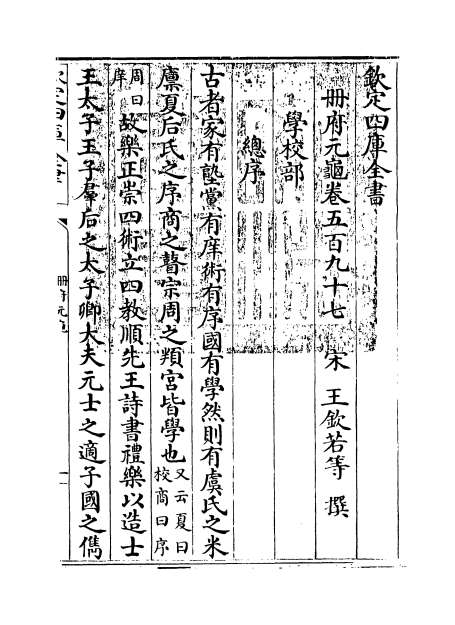 欽定四庫全書
冊府元龜卷五百九十七 宋 王欽若等 撰
學校部
總序
古者家有塾黨有庠術有序國有學然則有虞氏之米
廩夏后氏之序商之瞽宗周之頖宮皆學也又云夏曰校商曰序
周曰庠故樂正崇四術立四教順先王詩書禮樂以造士
王太子王子羣后之太子卿大夫元士之適子國之儁
冊府元龜